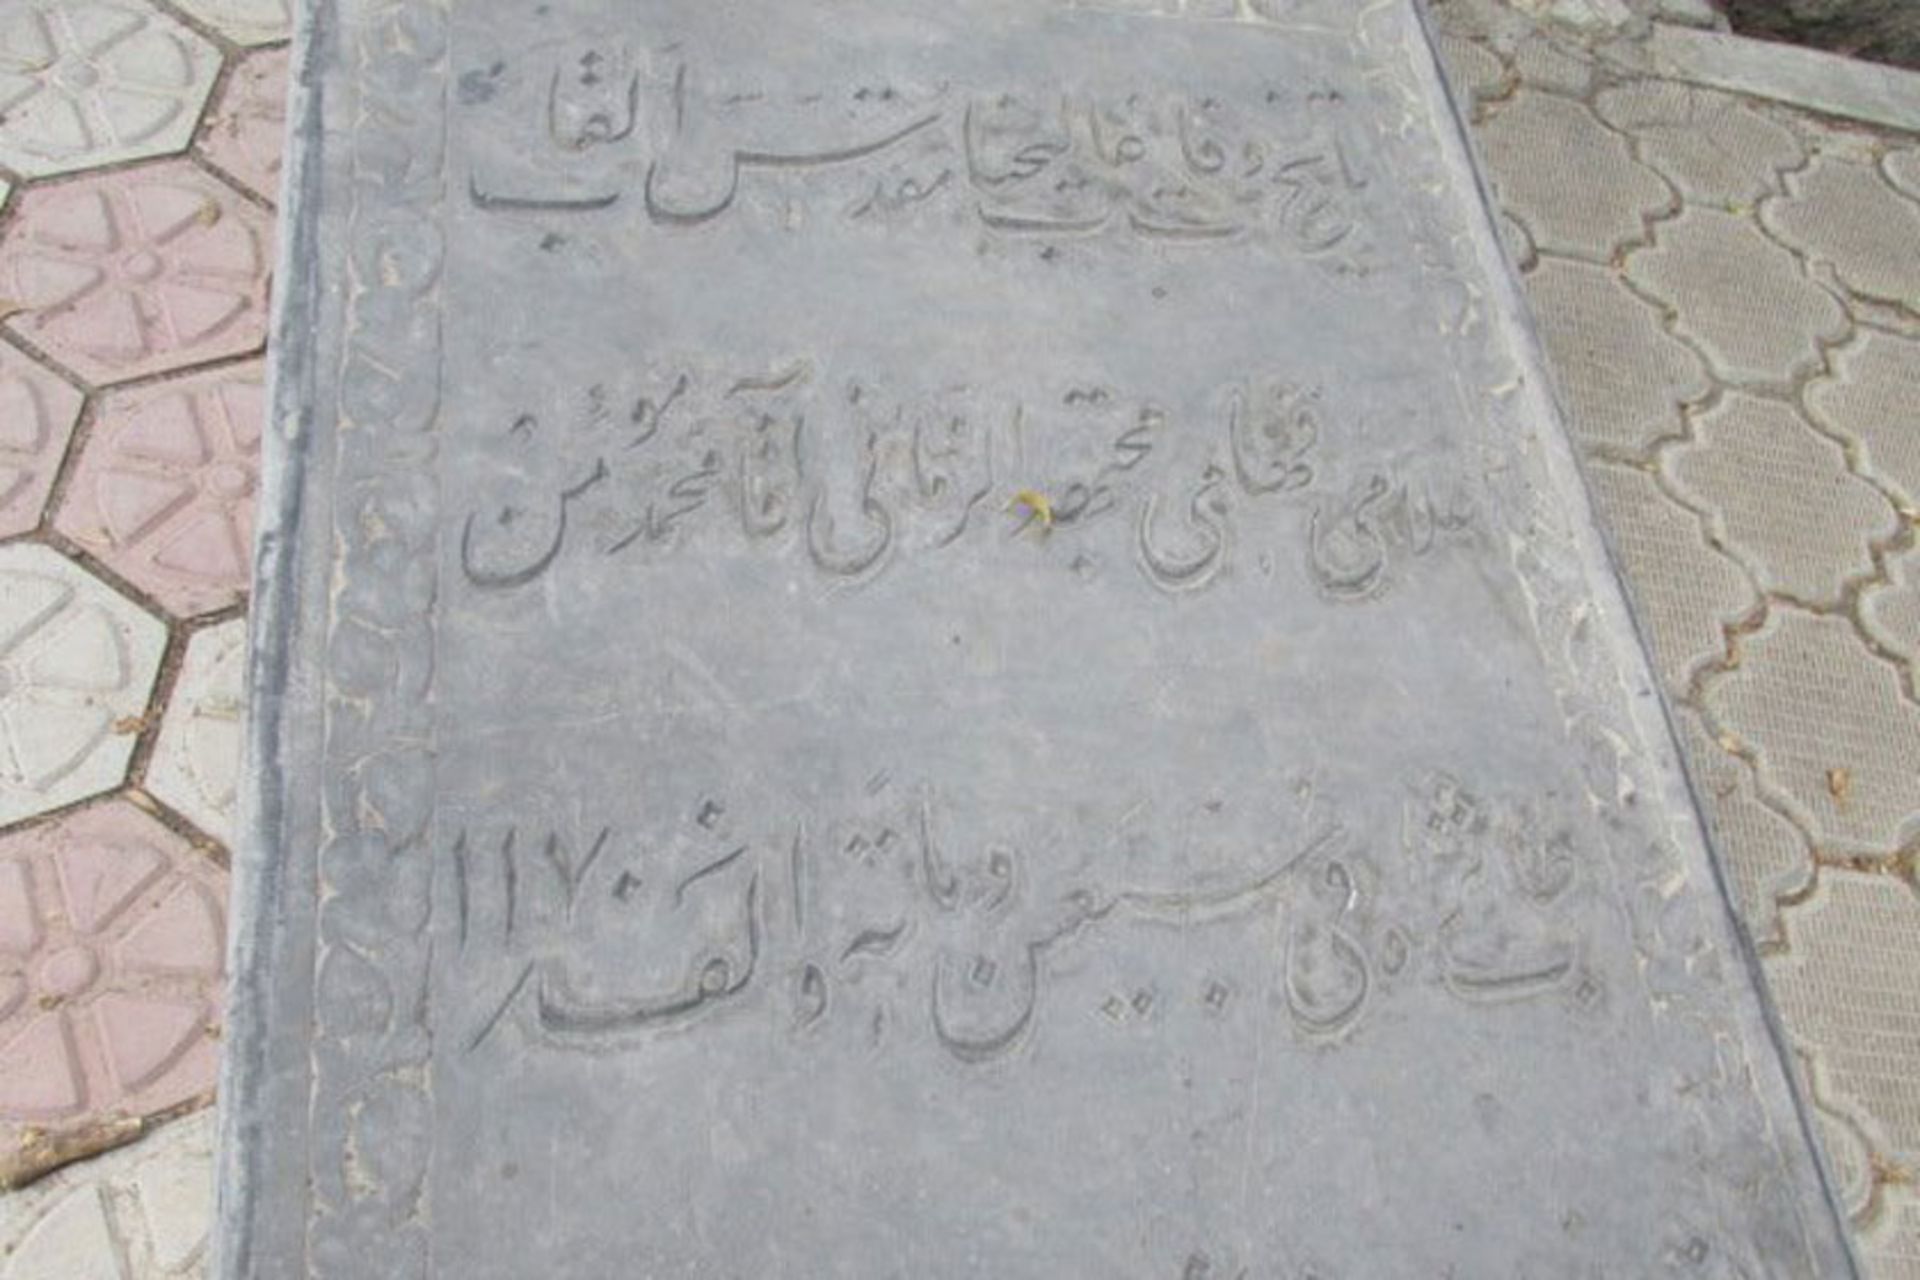 تاریخ وفات عالیجناب مقدس القاب
علامی فهامی مجتهد الزمانی آقا محمد مؤمن
طاب ثراه فی سبعین و مائة و الف ۱۱۷۰